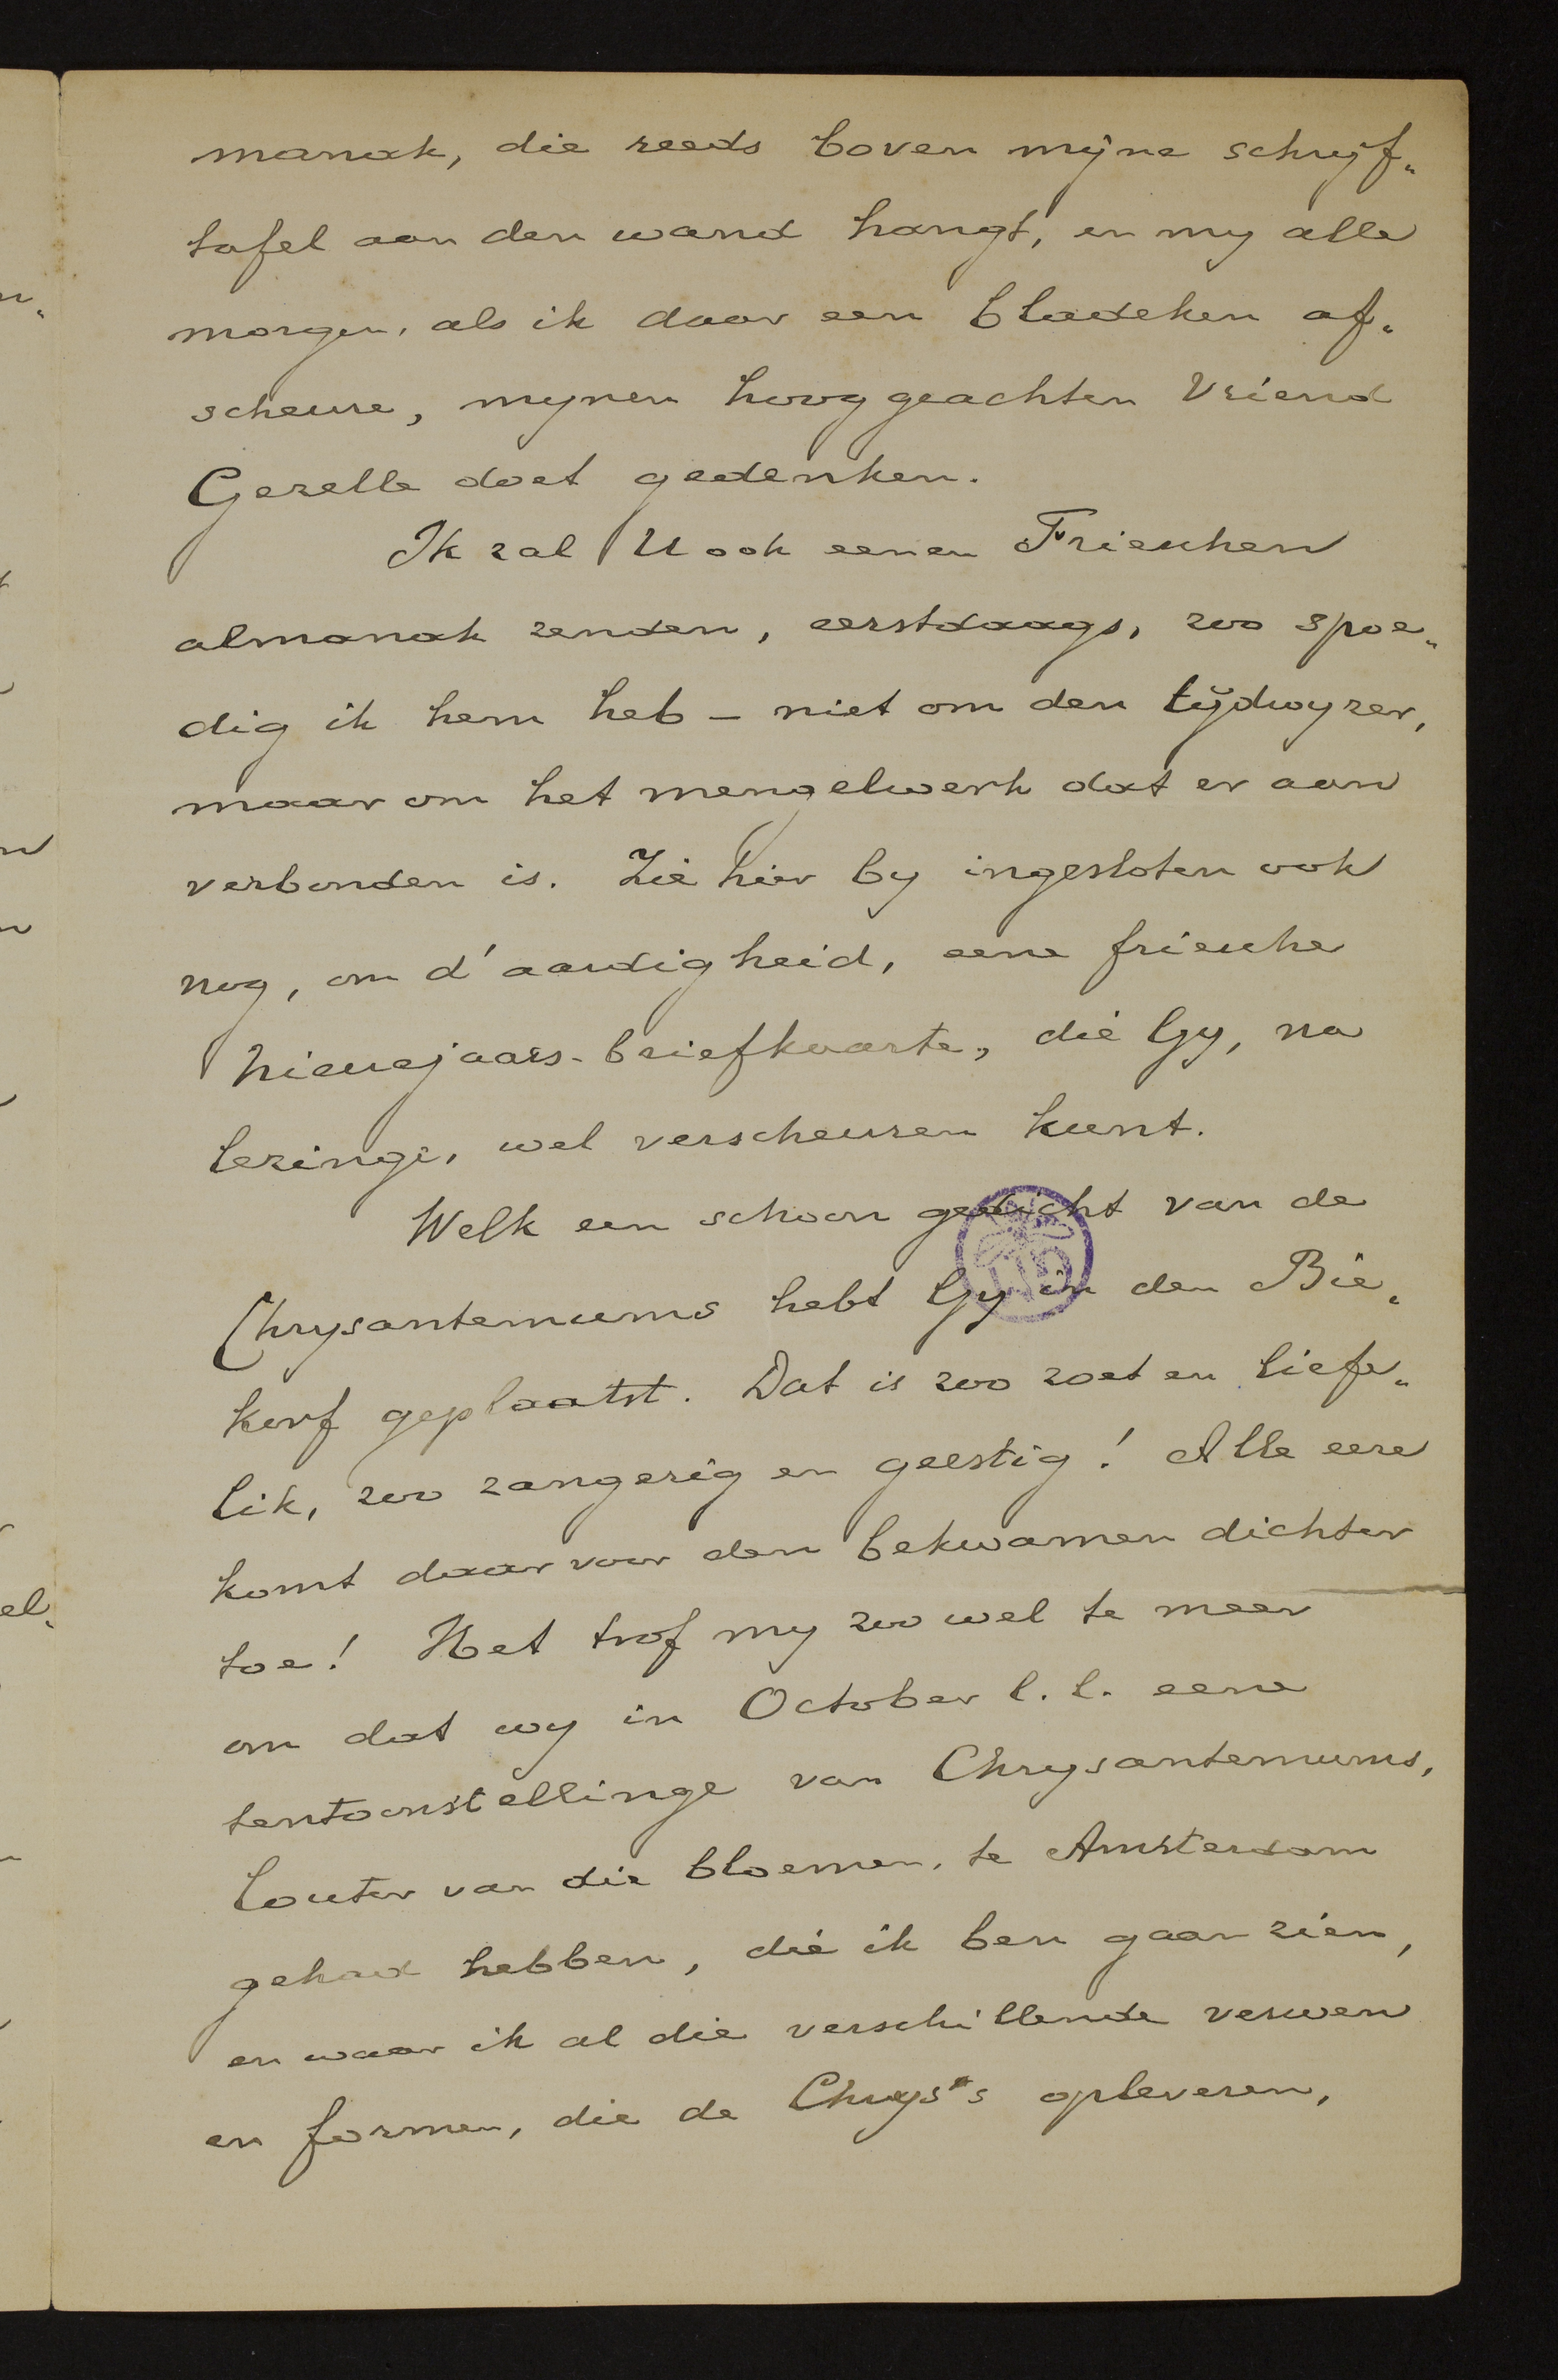 manak, die reeds boven mijne schrijf„
tafel aan den wand hangt, en my alle
morgen, als ik daar een bladeken af„
scheure, mynen hooggeachten Vriend
Gezelle doet gedenken.
Ik zal U ook eenen Frieschen
almanak zenden, eerstdaags, zoo spoe„
dig ik hem heb – niet om den tijdwyzer,
maar om het mengelwerk dat er aan
verbonden is. Zie hier by ingesloten ook
nog, om d'aardigheid, eene friesche
Nieuejaars-briefkaarte, die Gy, na
lezinge, wel verscheuren kunt.
Welk een schoon gedicht van de
Chrysantemums hebt Gy in den Bie„
korf geplaatst. Dat is zoo zoet en liefe„
lik, zoo zangerig en geestig! Alle eere
komt daarvoor den bekwamen dichter
toe! Het trof my zoo wel te meer
om dat wy in October l.l. eene
tentoonstellinge van Chrysantemums,
louter van die bloemen, te Amsterdam
gehad hebben, die ik ben gaan zien,
en waar ik al die verschillende verwen
en formen, die de Chrys's opleveren,